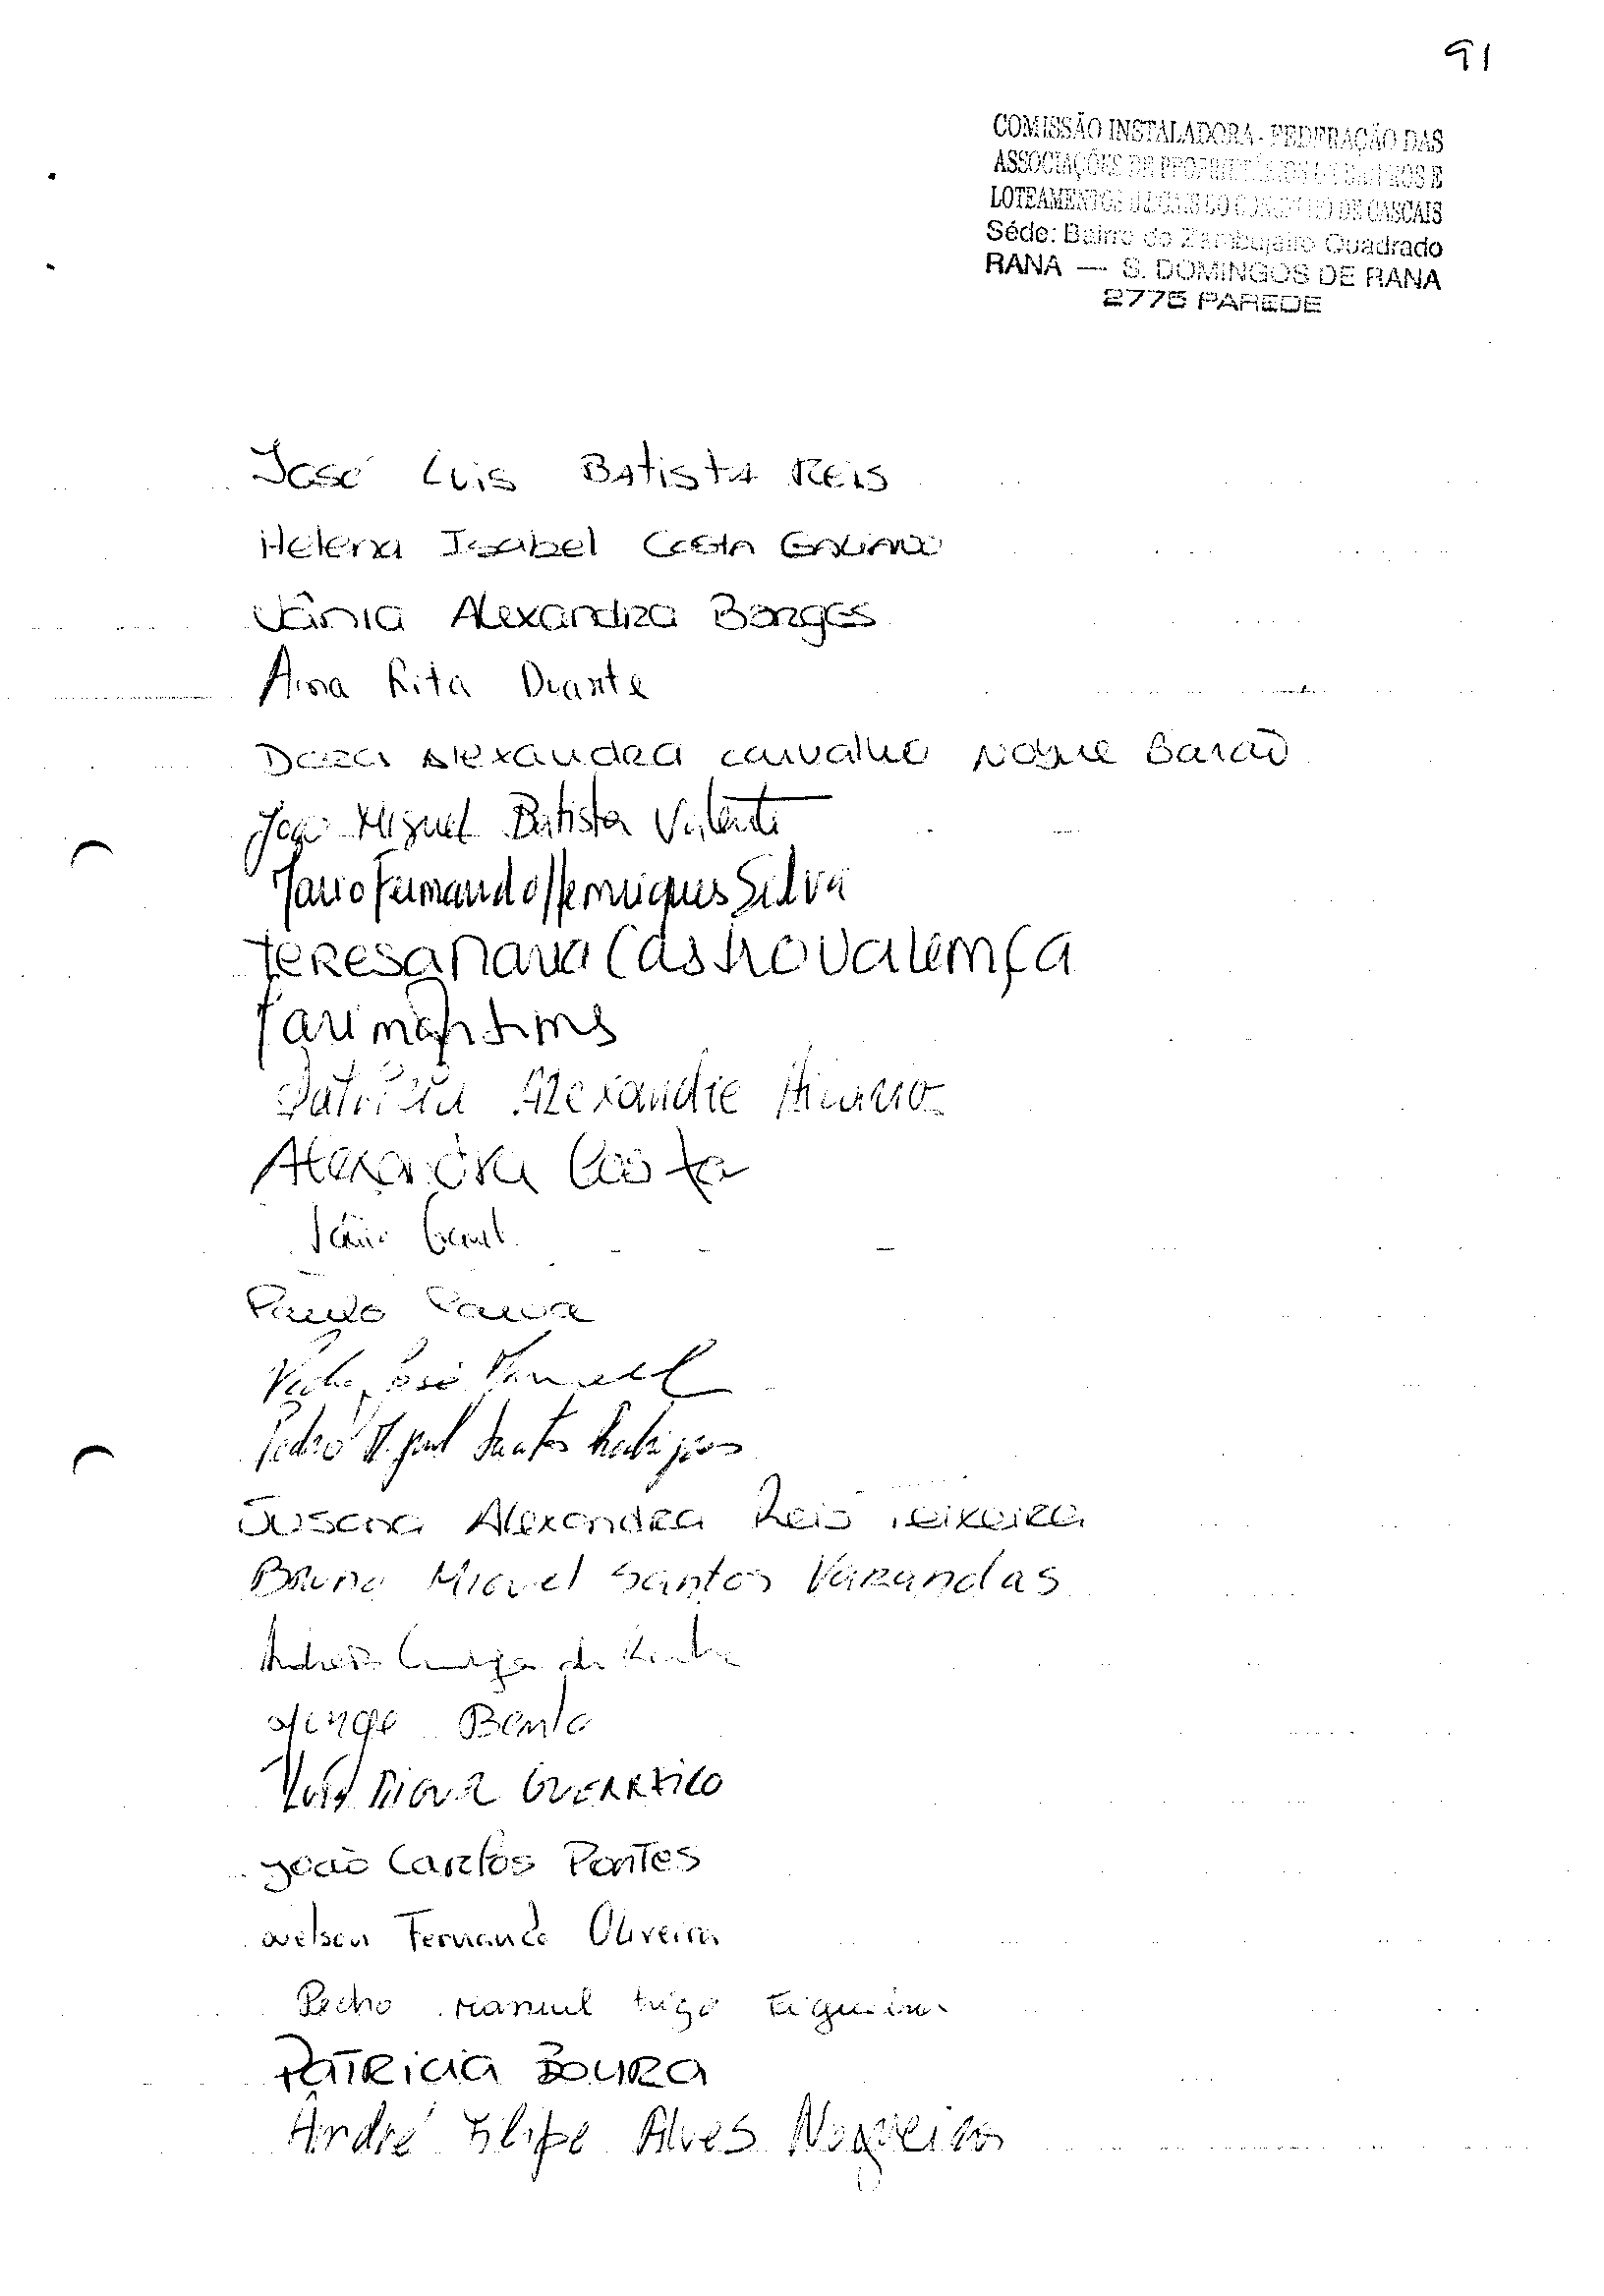 91
COMISSÃO INSTALADORA - FEDERAÇÃO DAS
ASSOCIAÇÕES DE PROPRIETÁRIOS DE BAIRROS E
LOTEAMENTOS ILEGAIS DO CONCELHO DE CASCAIS
Séde: Bairro do Zambujeiro Quadrado
RANA — S. DOMINGOS DE RANA
2775 PAREDE
José Luis Batista Reis
Helena Isabel Costa
Vânia Alexandra Borges
Ana Rita Duarte
Alexandra Carvalho Barão
João Miguel Batista Valente
Fernando Henriques Silva
Teresa Maria Castro Valença
Martins
Patrícia Alexandre
Alexandra Costa
Paulo Paiva
Pedro José Manuel
Pedro Miguel Santos Rodrigues
Susana Alexandra Reis Teixeira
Bruno Miguel Santos Varandas
Jorge Bento
Luís Miguel
João Carlos Pontes
Nelson Fernando Oliveira
Pedro Manuel Trigo Figueira
Patricia Boura
André Filipe Alves Nogueira